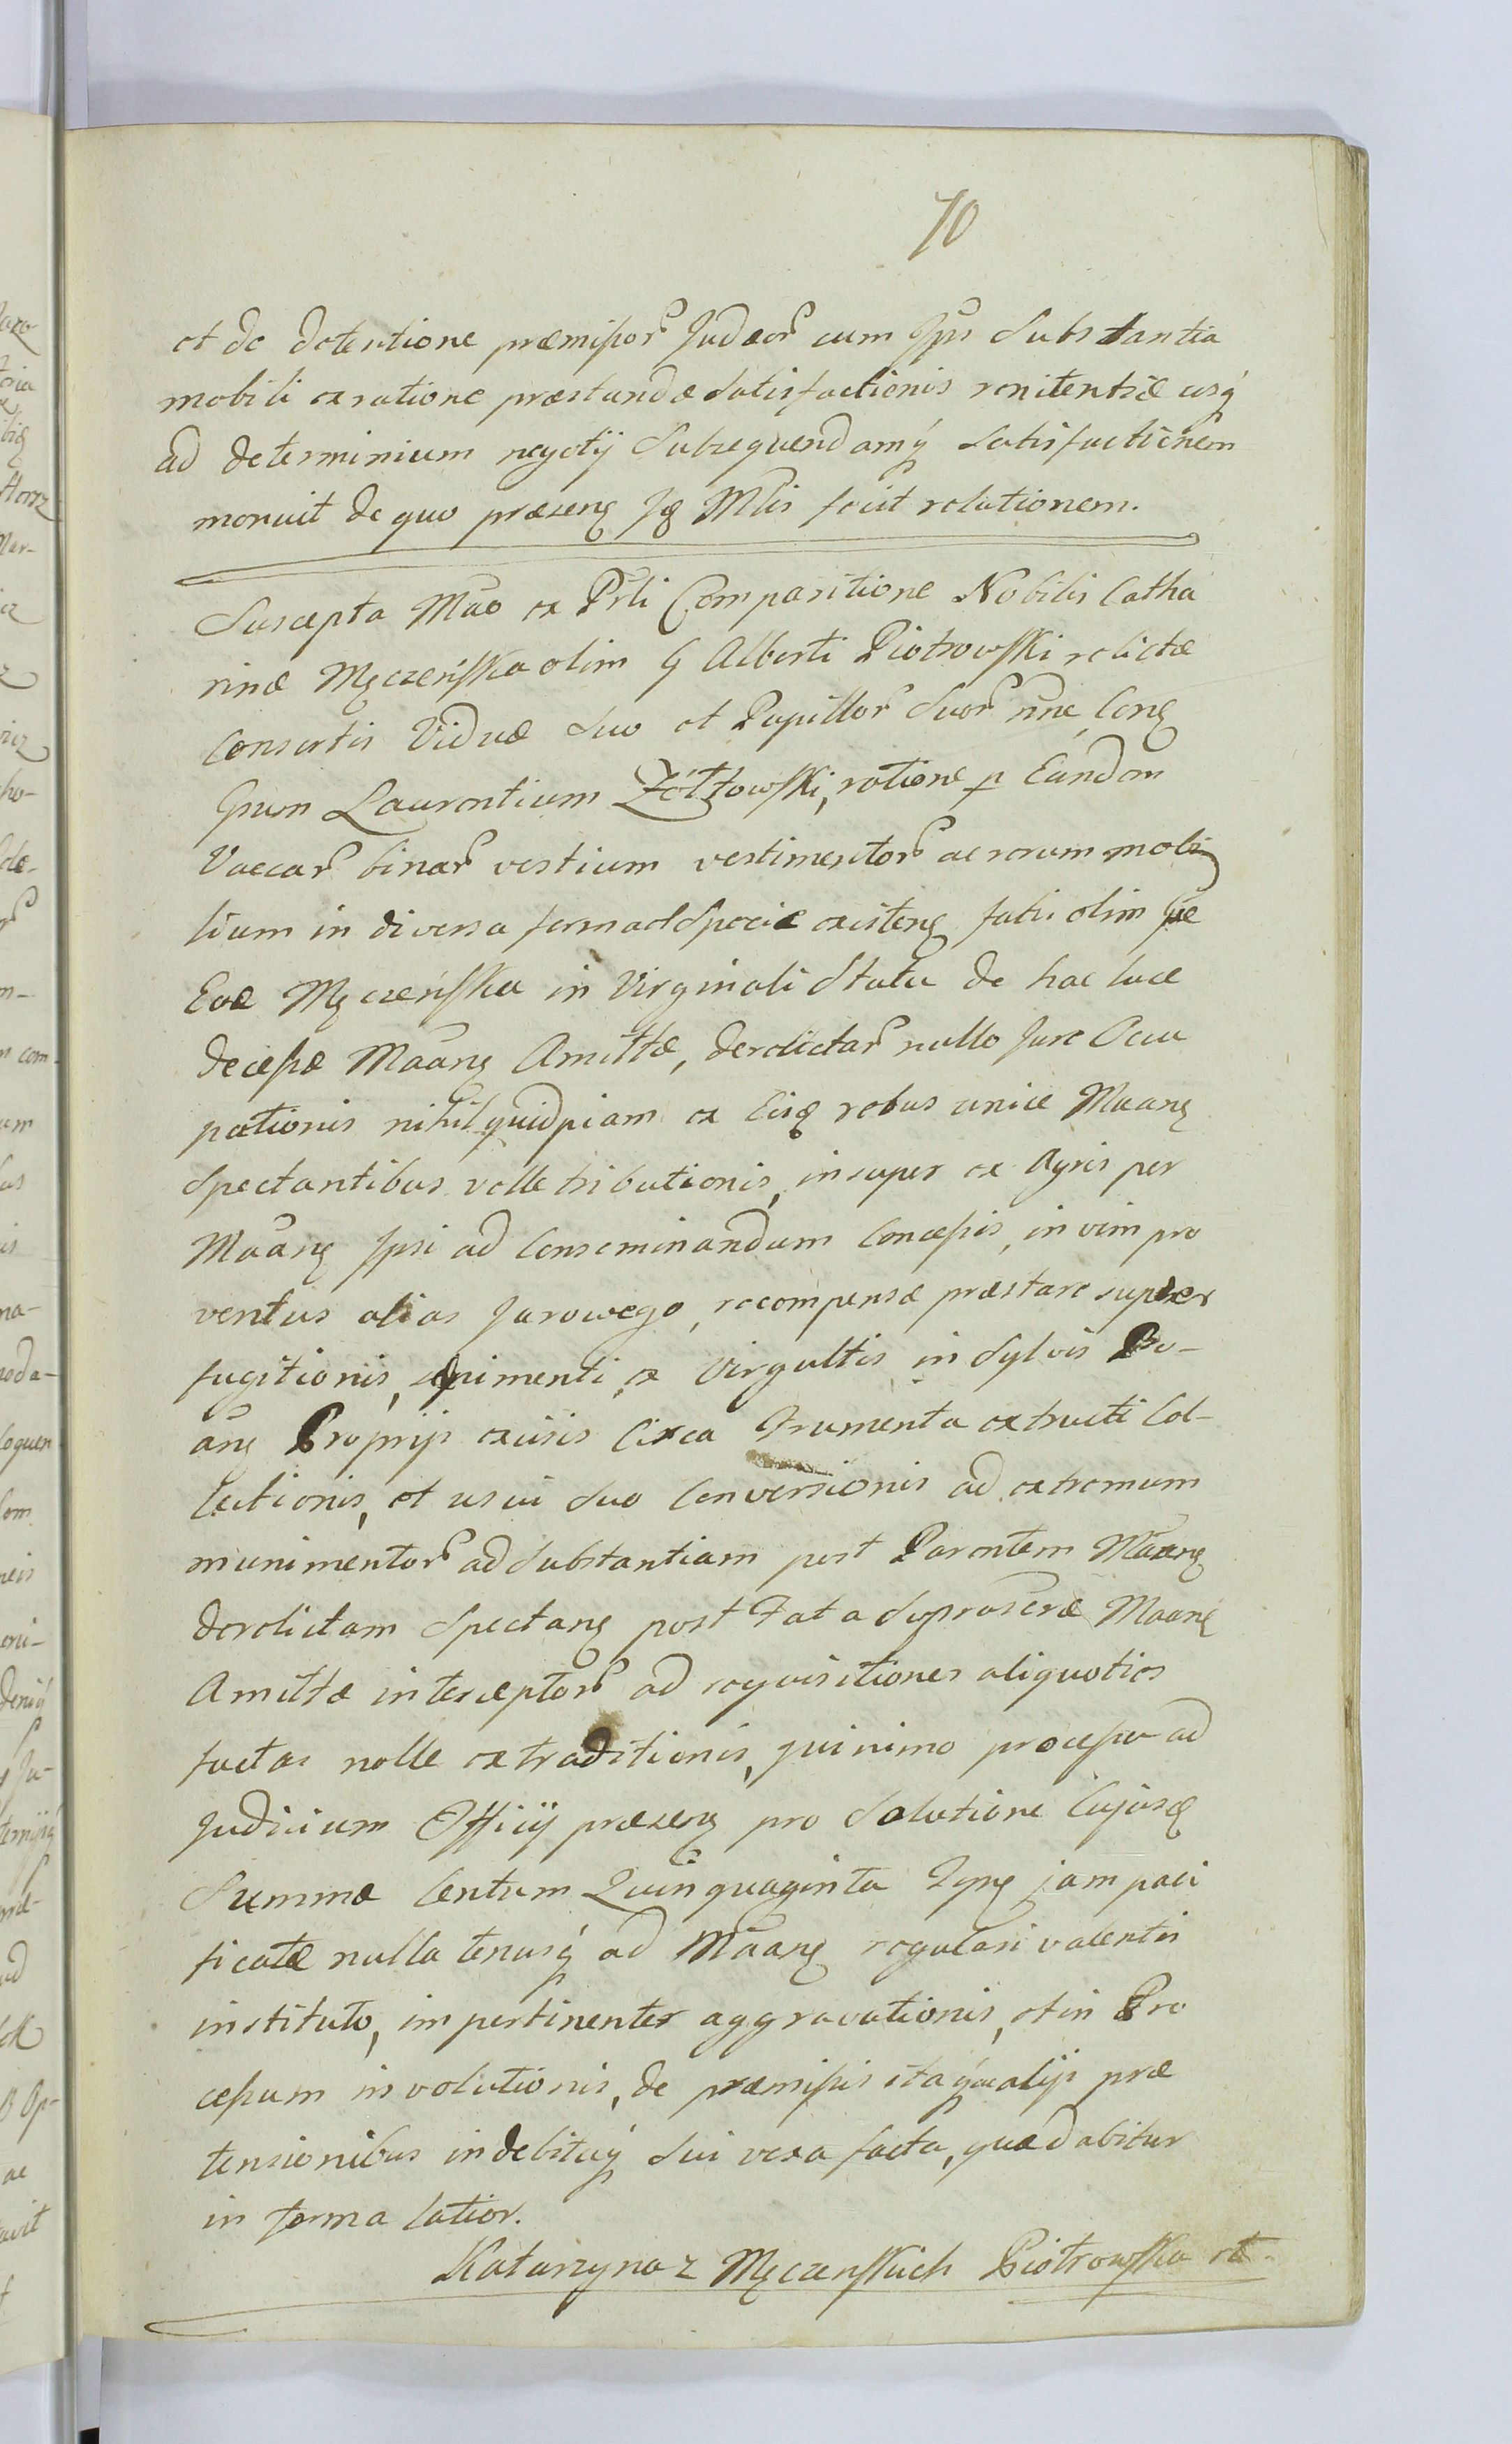 70
et de detentione præmissor Judæor cum Ipsis Substantia
mobili ex ratione præstandæ Satisfactionis renitentiæ usq
ad determinium negotij Subsequendamq satisfactionem
monuit de quo præseng Jg Mlis fecit relationem.
Suscepta Mão ex Prli Comparitione Nobilis Catha
rinæ Męczeńska olim G Alberti Piotrowski relictæ
Consortis Viduæ suo et Pupillor Suor nne, Cong
Gnum Laurentium Żółtowski, ratione p Eundem
Vaccar binar vestium vestimentor ac rerum mobi
lium in diversa forma et Specie existeng fatis olim Gæ
Evæ Męczeńska in Virginali Statu de hac luce
decessæ Maãng Amittæ, derelictar nullo Jure Occu
pationis nihil quidpiam ex Eisq rebus unice Maang
Spectantibus velle tributionis, insuper ex Agris per
Maãng Ipsi ad Conseminandum Concessis, in vim pro
ventus alias Jarowego, recompensæ præstare supter
fugitionis, sepimenti ex Virgultis in Sylvis
ang Proprijs excisis Circa Frumenta extructi Col-
lectionis, et usui suo Conversionis ad extremum
munimentor ad Substantiam post Parentem Mãang
derelictam Spectang post Fata Suprascræ Maang
Amittæ interceptor ad requisitiones aliquoties
factas nolle extraditionis, quinimo processu ad
Judicium Officij præseng pro Solutione Cujusq
Summæ Centum Quinquaginta jam paci
ficatæ nulla tenusq ad Mãang regulari valentis
instituto, impertinenter aggravationis, et in Pro
cessum involutionis, de præmissis itaque alijs præ
tensionibus indebitaq sui vexa facta, quæ dabitur
in forma latior.
Katarzyna z Męczenskich Piotrowska